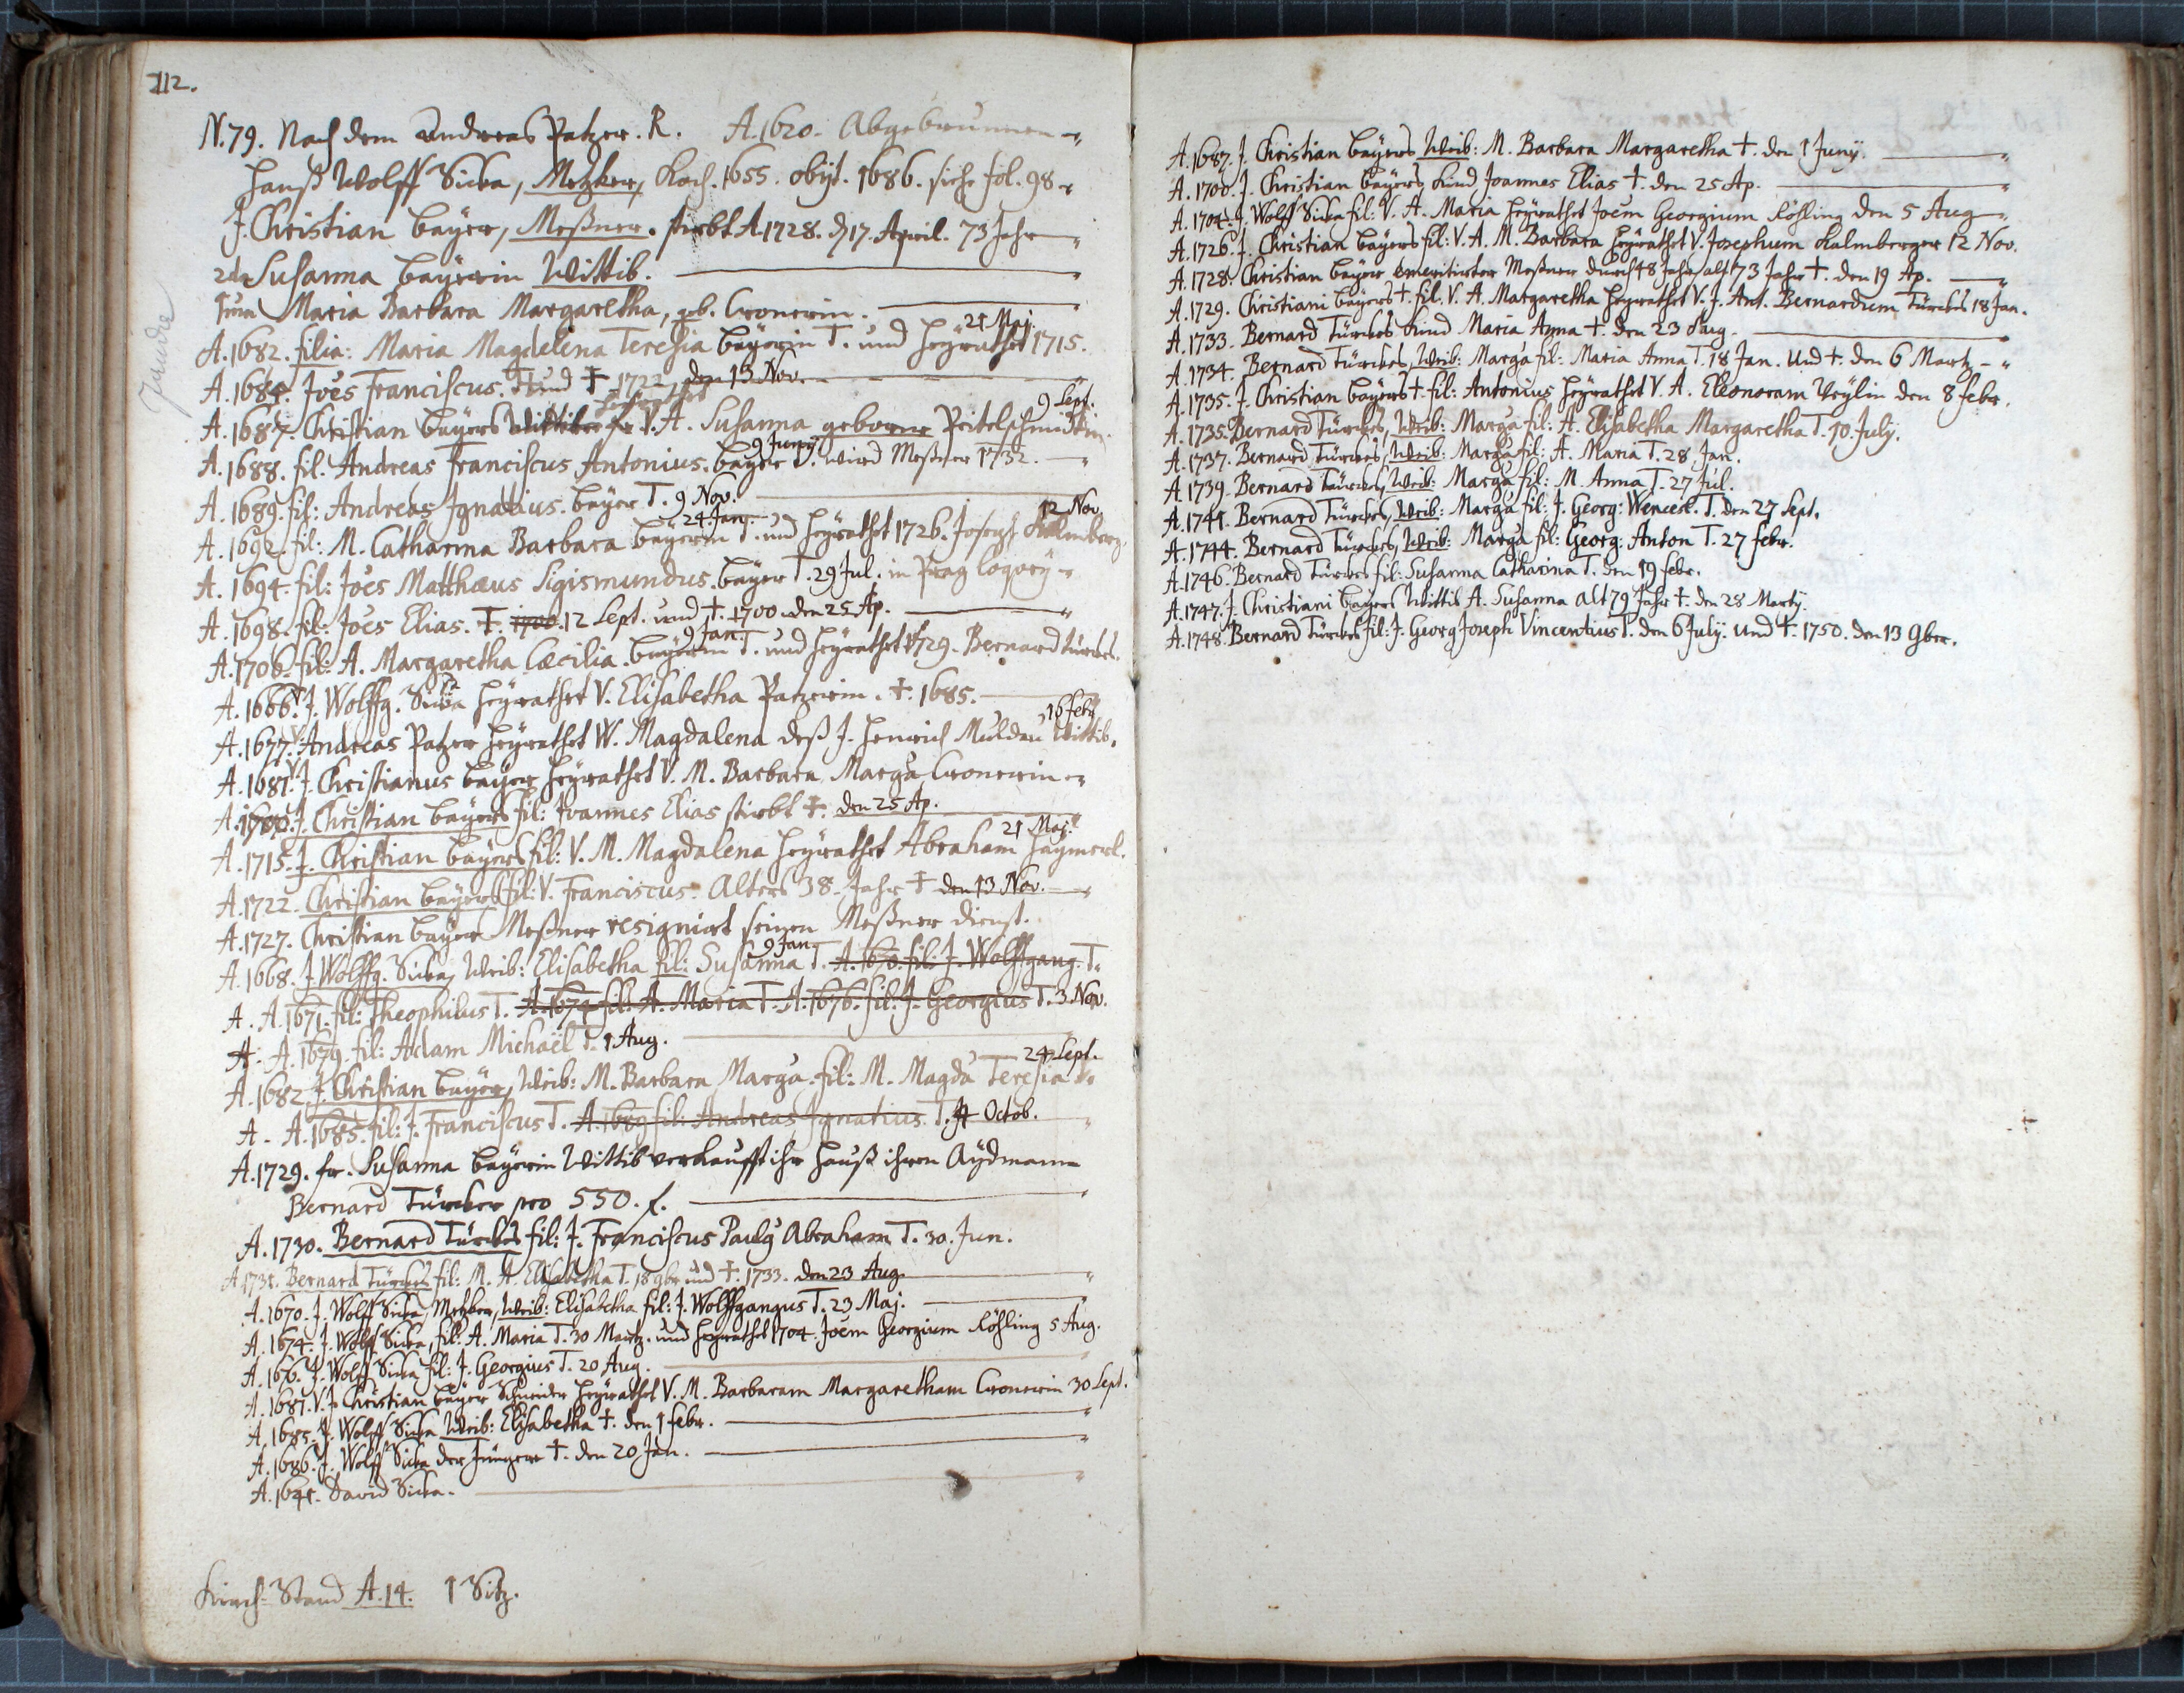 112.
N. 79. Nach dem Andreas Patzer. R. A. 1620. Abgebrunnen
Hanß Wolff Sicka, Metzker, Koch. 1655. obijt. 1686. siehe fol. 98
J. Christian Bayer, Meßner. stirbt A. 1728. d. 17. April. 73 Jahr
2da Susanna Bayerin Wittib.
1ma Maria Barbara Margaretha, geb. Cronerin.
21 Maj.
A. 1682. filia: Maria Magdelena Teresia Bayerin T. und heyrathet 1715.
A. 1684. Joës Franciscus. T. und † 1722 den 13 Nov.
heyrathet 9 Sept.
A. 1687. Christian Bayers Wittiber V. A. Susanna geborne
9 Junij
A. 1688. fil: Andreas Franciscus Antonius. Bayer T. wird Meßner 1732.
A. 1689. fil: Andreas Ignatius. Bayer T. 9 Nov.
24. Jan. 12 Nov.
A. 1692. fil: M. Catharina Barbara Bayerin T. und heyrathet 1726. Joseph Kalmberg.
A. 1694. fil: Joës Matthæus Sigismundus. Bayer T. 29 Jul. in Prag
A. 1698. fil: Joës Elias. T. 1700. 12 Sept. und †. 1700. den 25 Ap.
9 Jan.
A. 1706. fil: A. Margaretha Cæcilia. Bayerin T. und heyrathet 1729. Bernard Türckes.
A. 1666. J. Wolffg. Sicka heyrathet V. Elisabetha Patzerin. †. 1685.
16 feb
A. 1677. Andreas Patzer heyrathet W. Magdalena deß J. Henrich Muldau Wittib.
A. 1681. V. J. Christianus Bayer heyrathet V. M. Barbara Marga Cronerin
A. 1700. J. Christian Bayers fil: Joannes Elias stirbt †. den 25 Ap.
21 Maj.
A. 1715. J. Christian Bayers fil: V. M. Magdalena heyrathet Abraham Haymerl.
A. 1722. Christian Bayers fil: V. Franciscus. Alters 38. Jahr † den 13 Nov.
A. 1727. Christian Bayer Meßner resignirt seinen Meßner dienst.
9 Jan.
A. 1668. J. Wolffg. Sicka, Weib: Elisabetha fil: Susanna T. A. 1670. fil: J. Wolffgang. T.
A. A. 1671. fil: Theophilus T. A. 1674 fil: A. Maria T. A. 1676. fil: J. Georgius T. 3. Nov.
A. A. 1679. fil: Adam Michaël T. 1 Aug.
24 Sept.
A. 1682. J. Christian Bayer, Weib: M. Barbara Marga. fil: M. Magda Teresia T.
A - A. 1685. fil: J. Franciscus T. A. 1689 fil: Andreas Ignatius. T. 4 Octob.
A. 1729. fr. Susanna Bayerin Wittib verkaufft ihr Hauß ihren Aydmann
Bernard Türckes pro 550. f.
A. 1730. Bernard Türckes fil: J. Franciscus Paulg Abraham T. 30. Jun.
A. 1731. Bernard Türckes fil: M. A. Elisabetha T. 18 9br und †. 1733. den 23 Aug
A. 1670. J. Wolff Sicka, Metzker, Weib: Elisabetha fil: J. Wolffgangus T. 23 Maj.
A. 1674. J. Wolff Sicka, fil: A. Maria T. 30 Martz. und heyrathet 1704. Joëm Georgium Rößling 5 Aug.
A. 1676. J. Wolff Sicka fil: J. Georgius T. 20 Aug.
A. 1681. V. J. Christian Bayer Schneider heyrathet V. M. Barbaram Margaretham Cronerin 30 Sept.
A. 1685. J. Wolff Sicka Weib: Elisabetha †. den 1 febr.
A. 1686. J. Wolff Sicka der Jüngere †. den 20 Jan.
David Sicka.
Kirch-Stand A. 14. 1 Sitz.
A. 1687. J. Christian Bayers Weib: M. Barbara Margaretha †. den 1 Junij.
A. 1700. J. Christian Bayers Kind Joannes Elias †. den 25 Ap.
A. 1704. J. Wolff Sicka fil: V. A. Maria heyrathet Joëm Georgium Rößling den 5 Aug
A. 1726. J. Christian Bayers fil: V. A. M. Barbara heyrathet V. Josephum Kalmberger 12 Nov.
A. 1728. Christian Bayer emeritirter Meßner durch 48 Jahr alt 73 Jahr †. den 19 Ap.
A. 1729. Christiani Bayers †. fil. V. A. Margaretha heyrathet V. J. Ant. Bernardum Türckes 18 Jan.
A. 1733. Bernard Türckes Kind Maria Anna †. den 23 Aug.
A. 1734. Bernard Türckes, Weib: Marga fil: Maria Anna T. 18 Jan. und †. den 6 Martz
A. 1735. J. Christian Bayers † fil: Antonius heyrathet V. A. Eleonoram Veylin den 8 febr.
A. 1735. Bernard Türckes, Weib: Marga fil: A. Elisabetha Margaretha T. 10. July.
A. 1737. Bernard Türckes, Weib: Marga fil: A. Maria T. 28 Jan.
A. 1739. Bernard Türckes, Weib: Marga fil: M. Anna T. 27 Jul.
A. 1741. Bernard Türckes, Weib: Marga fil: J. Georg: Wencesl. T. den 27 Sept.
A. 1744. Bernard Türckes, Weib: Marga fil: Georg: Anton T. 27 febr.
A. 1746. Bernard Türckes fil: Susanna Catharina T. den 19 febr.
A. 1747. J. Christiani Bayers Wittib A. Susanna alt 79 Jahr †. den 28 Marty.
A. 1748. Bernard Türckes fil: J. Georg Joseph Vincentius T. den 6 July. und †. 1750. den 13 9ber.